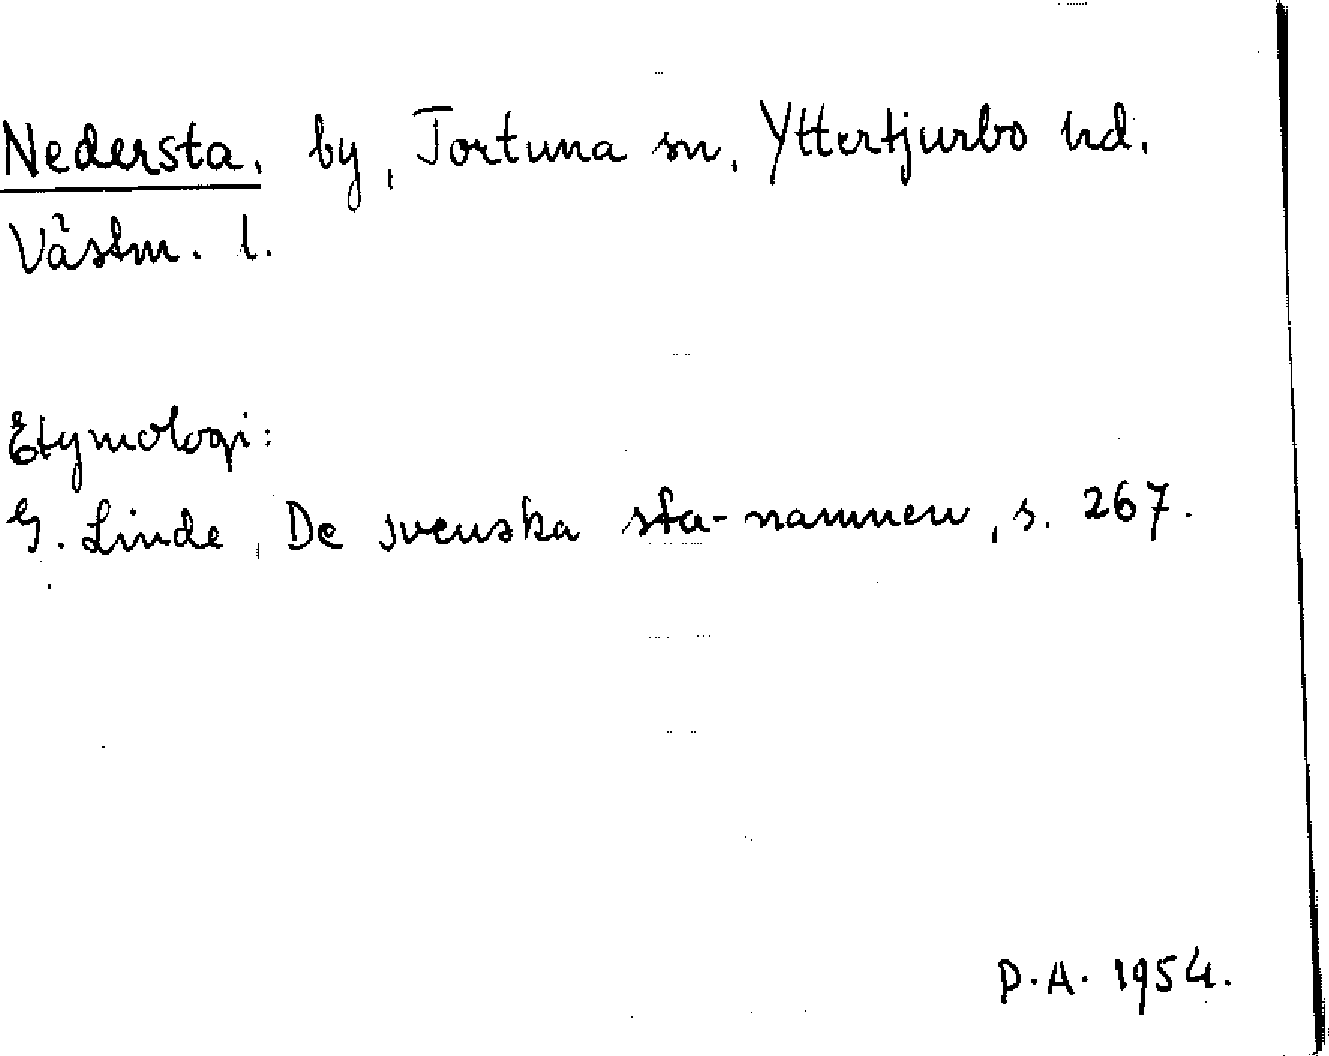 Nedersta, by, Tortuna sn, Yttertjurbo hd.
Västm. l.
Etymologi:
G. Linde, De svenska sta-namnen, s. 267.
D.A. 1954.